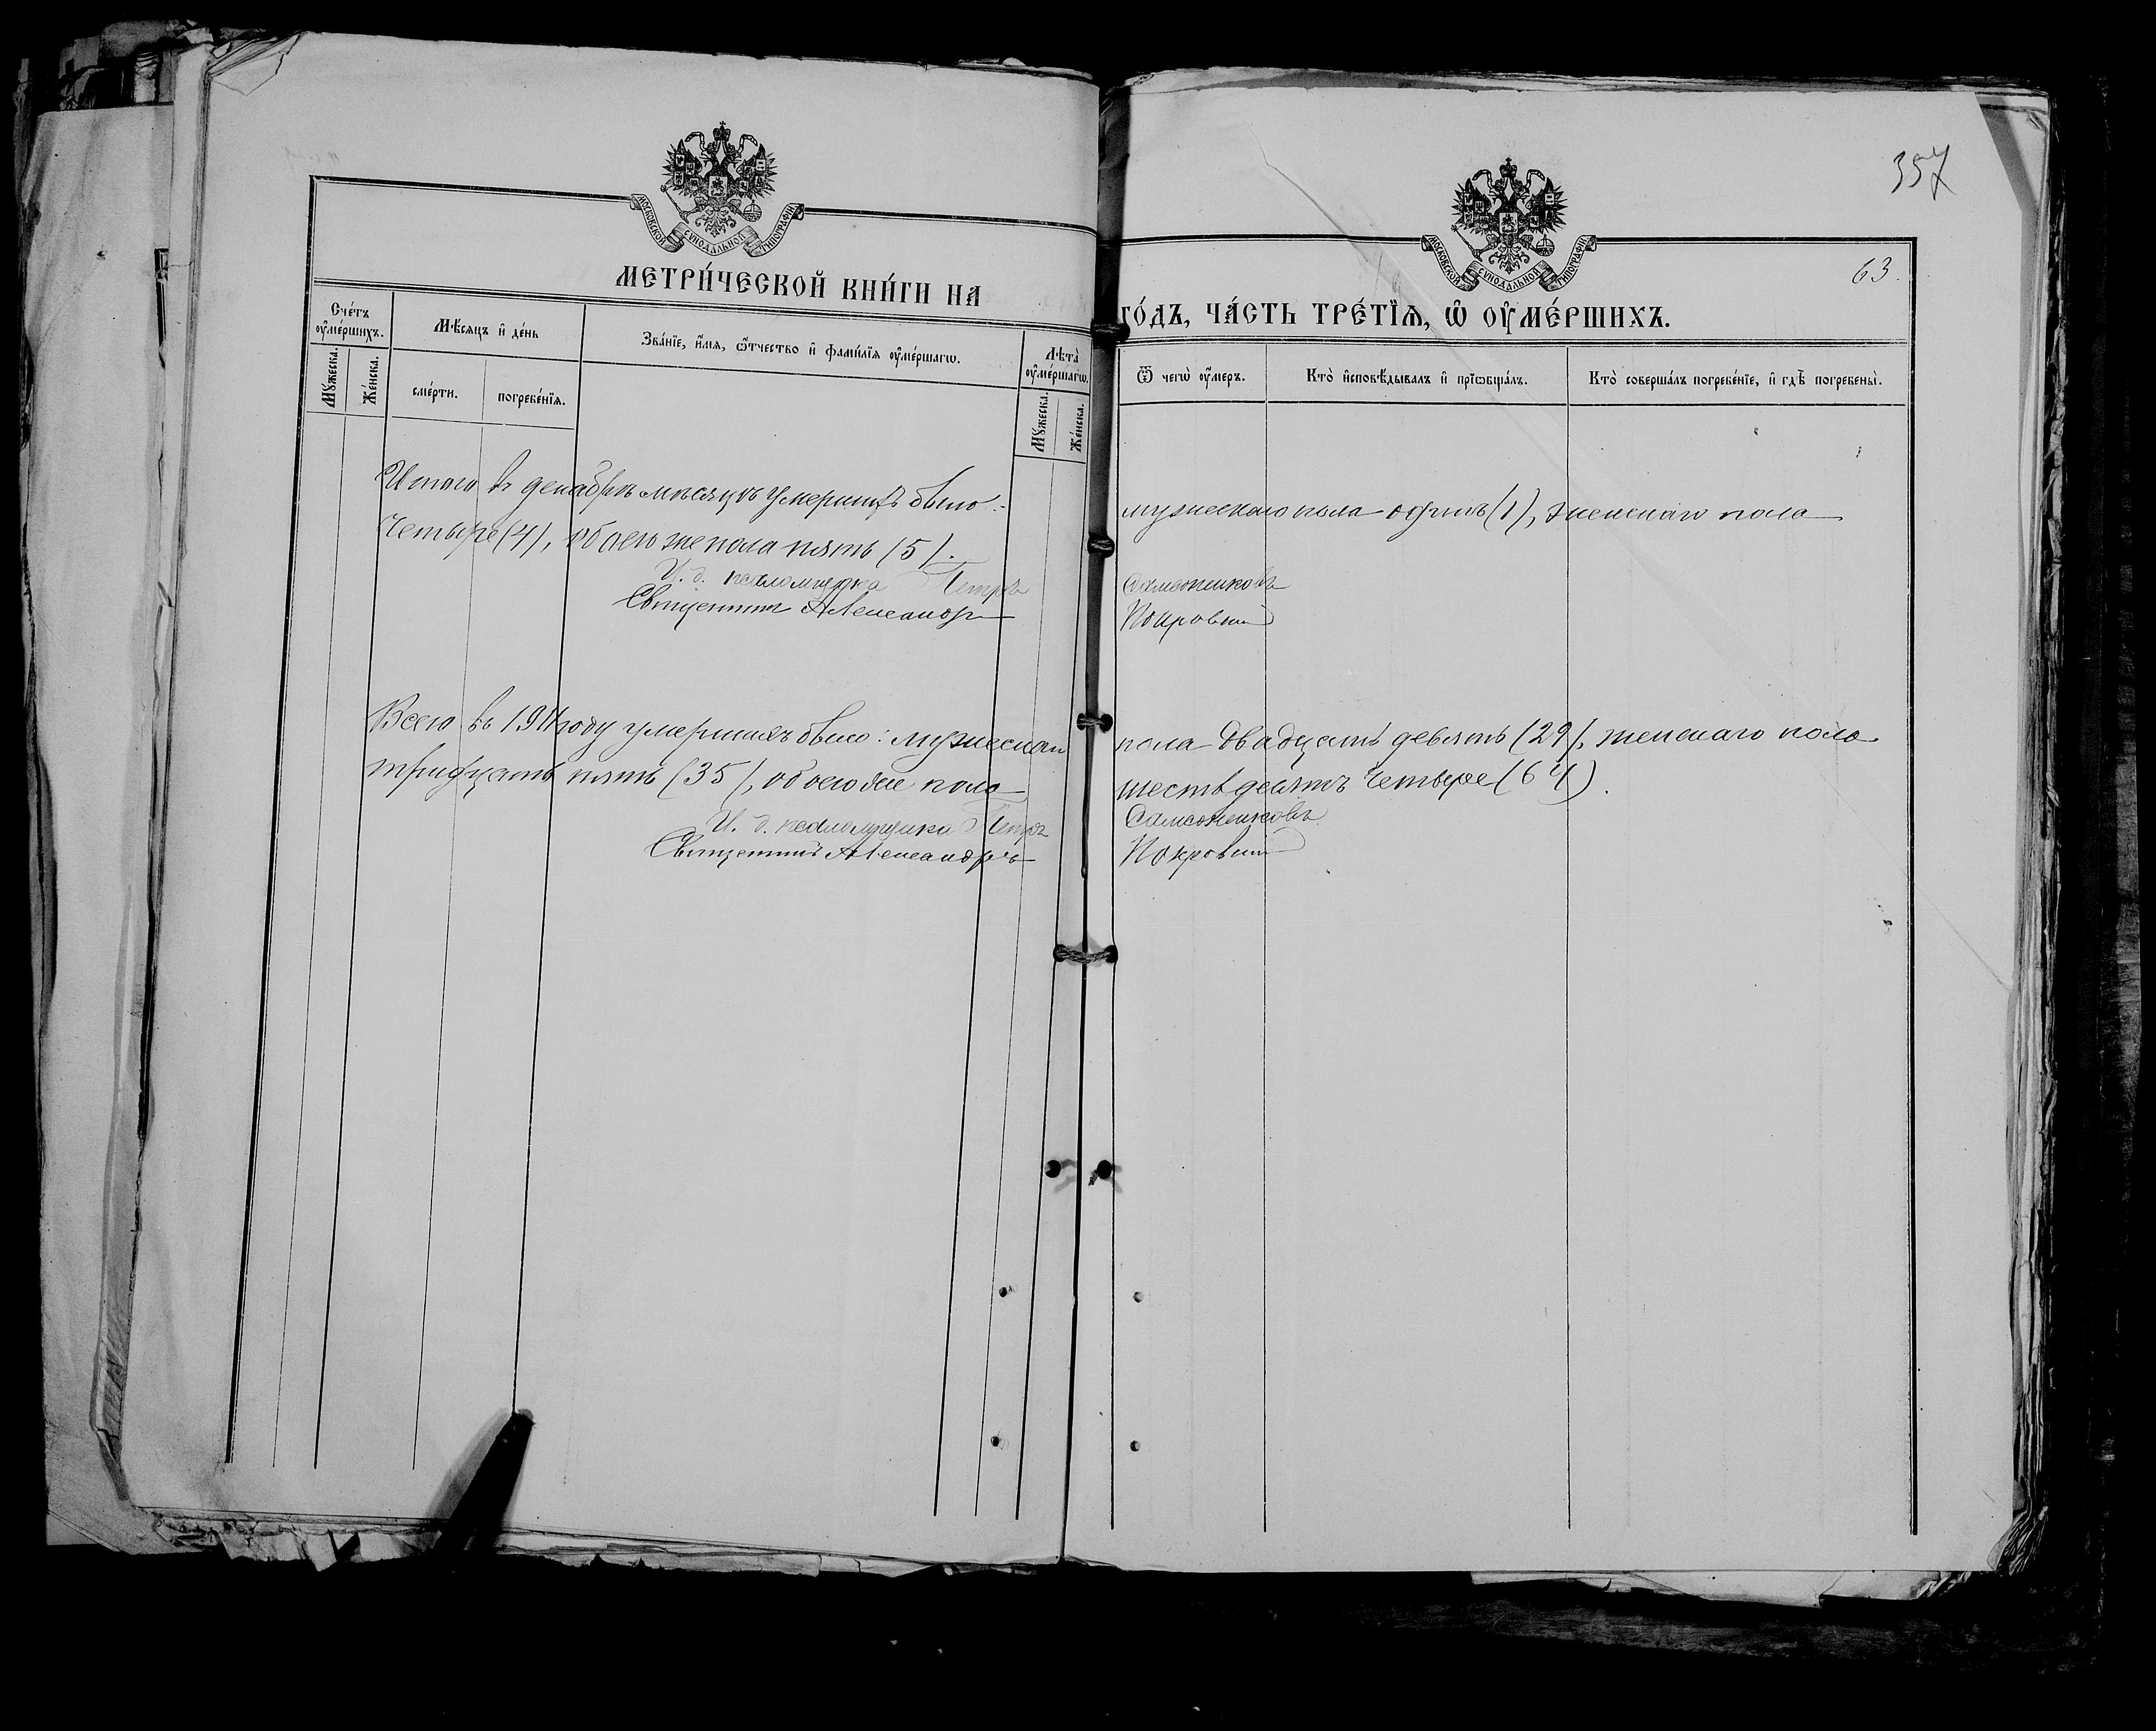 357
63.
МОСКОВСКОЙ СѴНОДАЛЬНОЙ ТИПОГРАФІИ
МОСКОВСКОЙ СѴНОДАЛЬНОЙ ТИПОГРАФІИ
МЕТРИ́ЧЕСКОЙ КНИ́ГИ НА
ГО́ДЪ, ЧА́СТЬ ТРЕ́ТЇѦ, Ѡ ОУ҆МЕ́РШИХЪ.
Сче́тъ оу҆ме́ршихъ.
Мꙋ́жеска.
Же́нска.
Мѣ́сяцъ и҆ де́нь
сме́рти.
погребе́нїѧ.
Зва́нїе, и҆́мѧ, ѻ҆́тчество и҆ фами́лїѧ оу҆ме́ршагѡ.
Лѣ́та оу҆ме́ршагѡ.
Мꙋ́жеска.
Же́нска.
Ѿ чегѡ̀ оу҆́меръ.
Кто̀ и҆сповѣ́дывалъ и҆ прїѡбща́лъ.
Кто̀ соверша́лъ погребе́нїе, и҆ гдѣ̀ погребены̀.
Итого въ декабрѣ мѣсяцѣ умершихъ было: мужескаго пола одинъ (1), женскаго пола
четыре (4), обоего же пола пять (5).
И. д. псаломщика Петръ Самсоненковъ
Священникъ Александръ Покровскій
Всего въ 1911 году умершихъ было: мужескаго пола двадцать девять (29), женскаго пола
тридцать пять (35), обоего же пола шестьдесятъ четыре (64).
И. д. псаломщика Петръ Самсоненковъ
Священникъ Александръ Покровскій